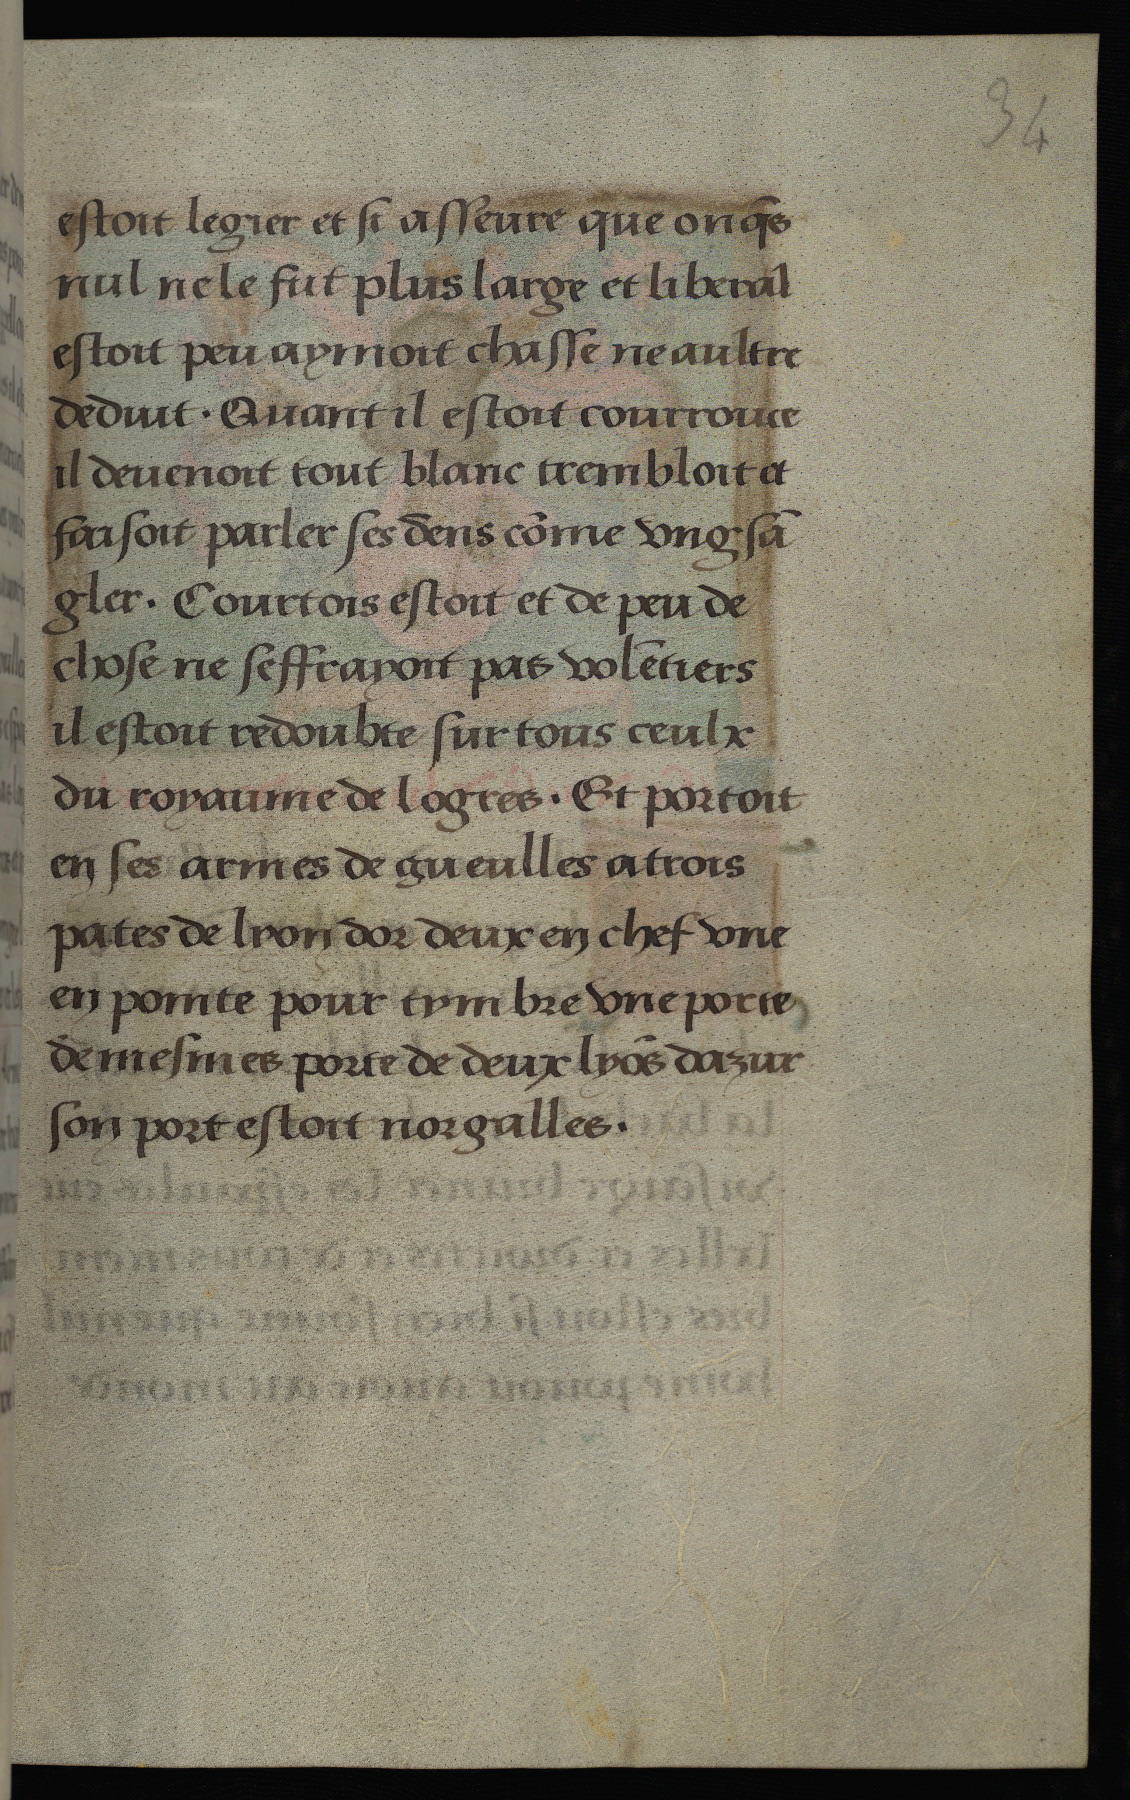 34
estoit legier et si asseure que onq̃s
nul ne le fut plus large et liberal
estoit peu aymoit chasse ne aultre
deduit. Quant il estoit courrouce
il deuenoit tout blanc trembloit et
faisoit parler ses dens cõme vng sã
gler. Courtois estoit et de peu de
chose ne seffrayoit pas volẽtiers
il estoit redoubte sur tous ceulx
du royaume de logres. Et portoit
en ses armes de gueulles a trois
pates de lyon dor deux en chef vne
en pointe pour tymbre vne porte
de mesmes porte de deux lyõs dazur
son port estoit norgalles.